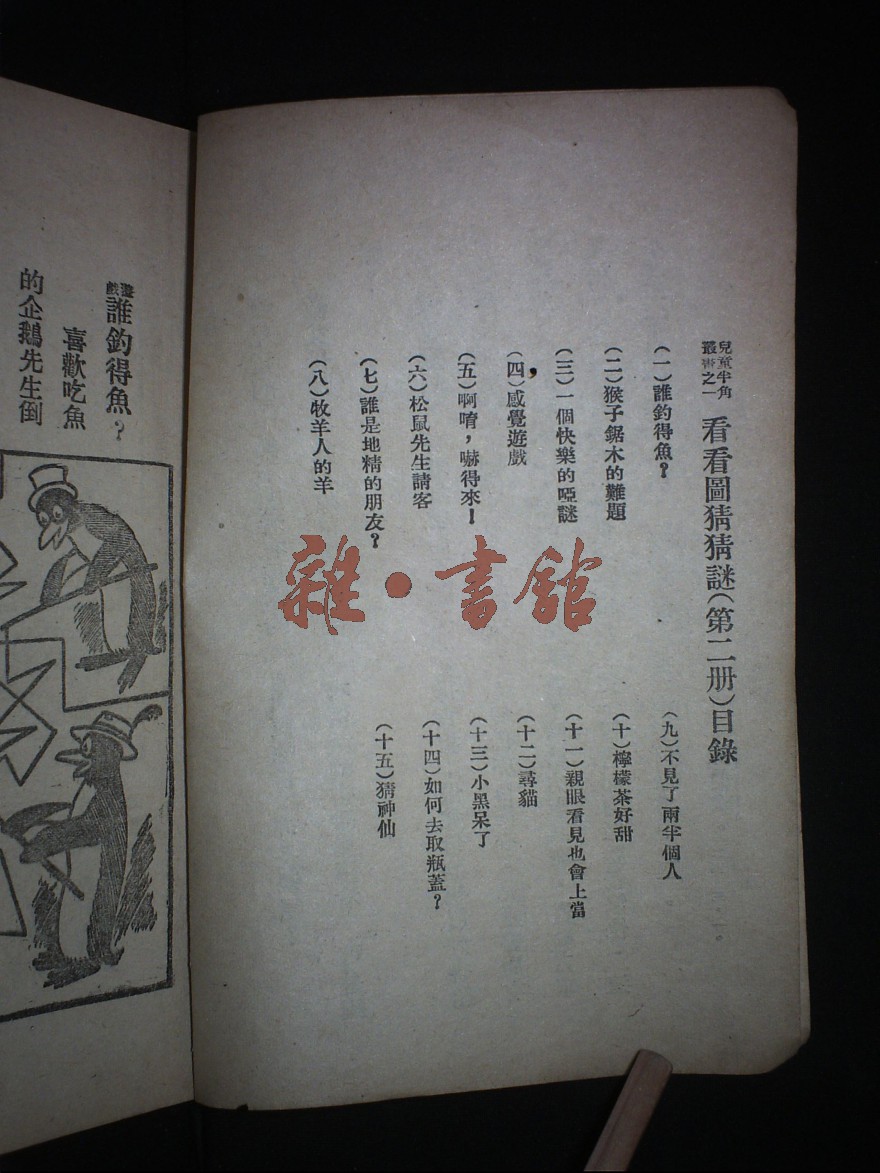 兒童半角
叢書之一
看看圖猜猜謎（第二册）目錄
（一）誰釣得魚？
（二）猴子鋸木的難題
（三）一個快樂的啞謎
（四）感覺遊戲
（五）啊唷，嚇得來！
（六）松鼠先生請客
（七）誰是地精的朋友？
（八）牧羊人的羊
（九）不見了兩半個人
（十）檸檬茶好甜
（十一）親眼看見也會上當
（十二）尋貓
（十三）小黑呆了
（十四）如何去取瓶蓋？
（十五）猜神仙
雜·書館
遊戲
誰釣得魚？
喜歡吃魚
的企鵝先生倒